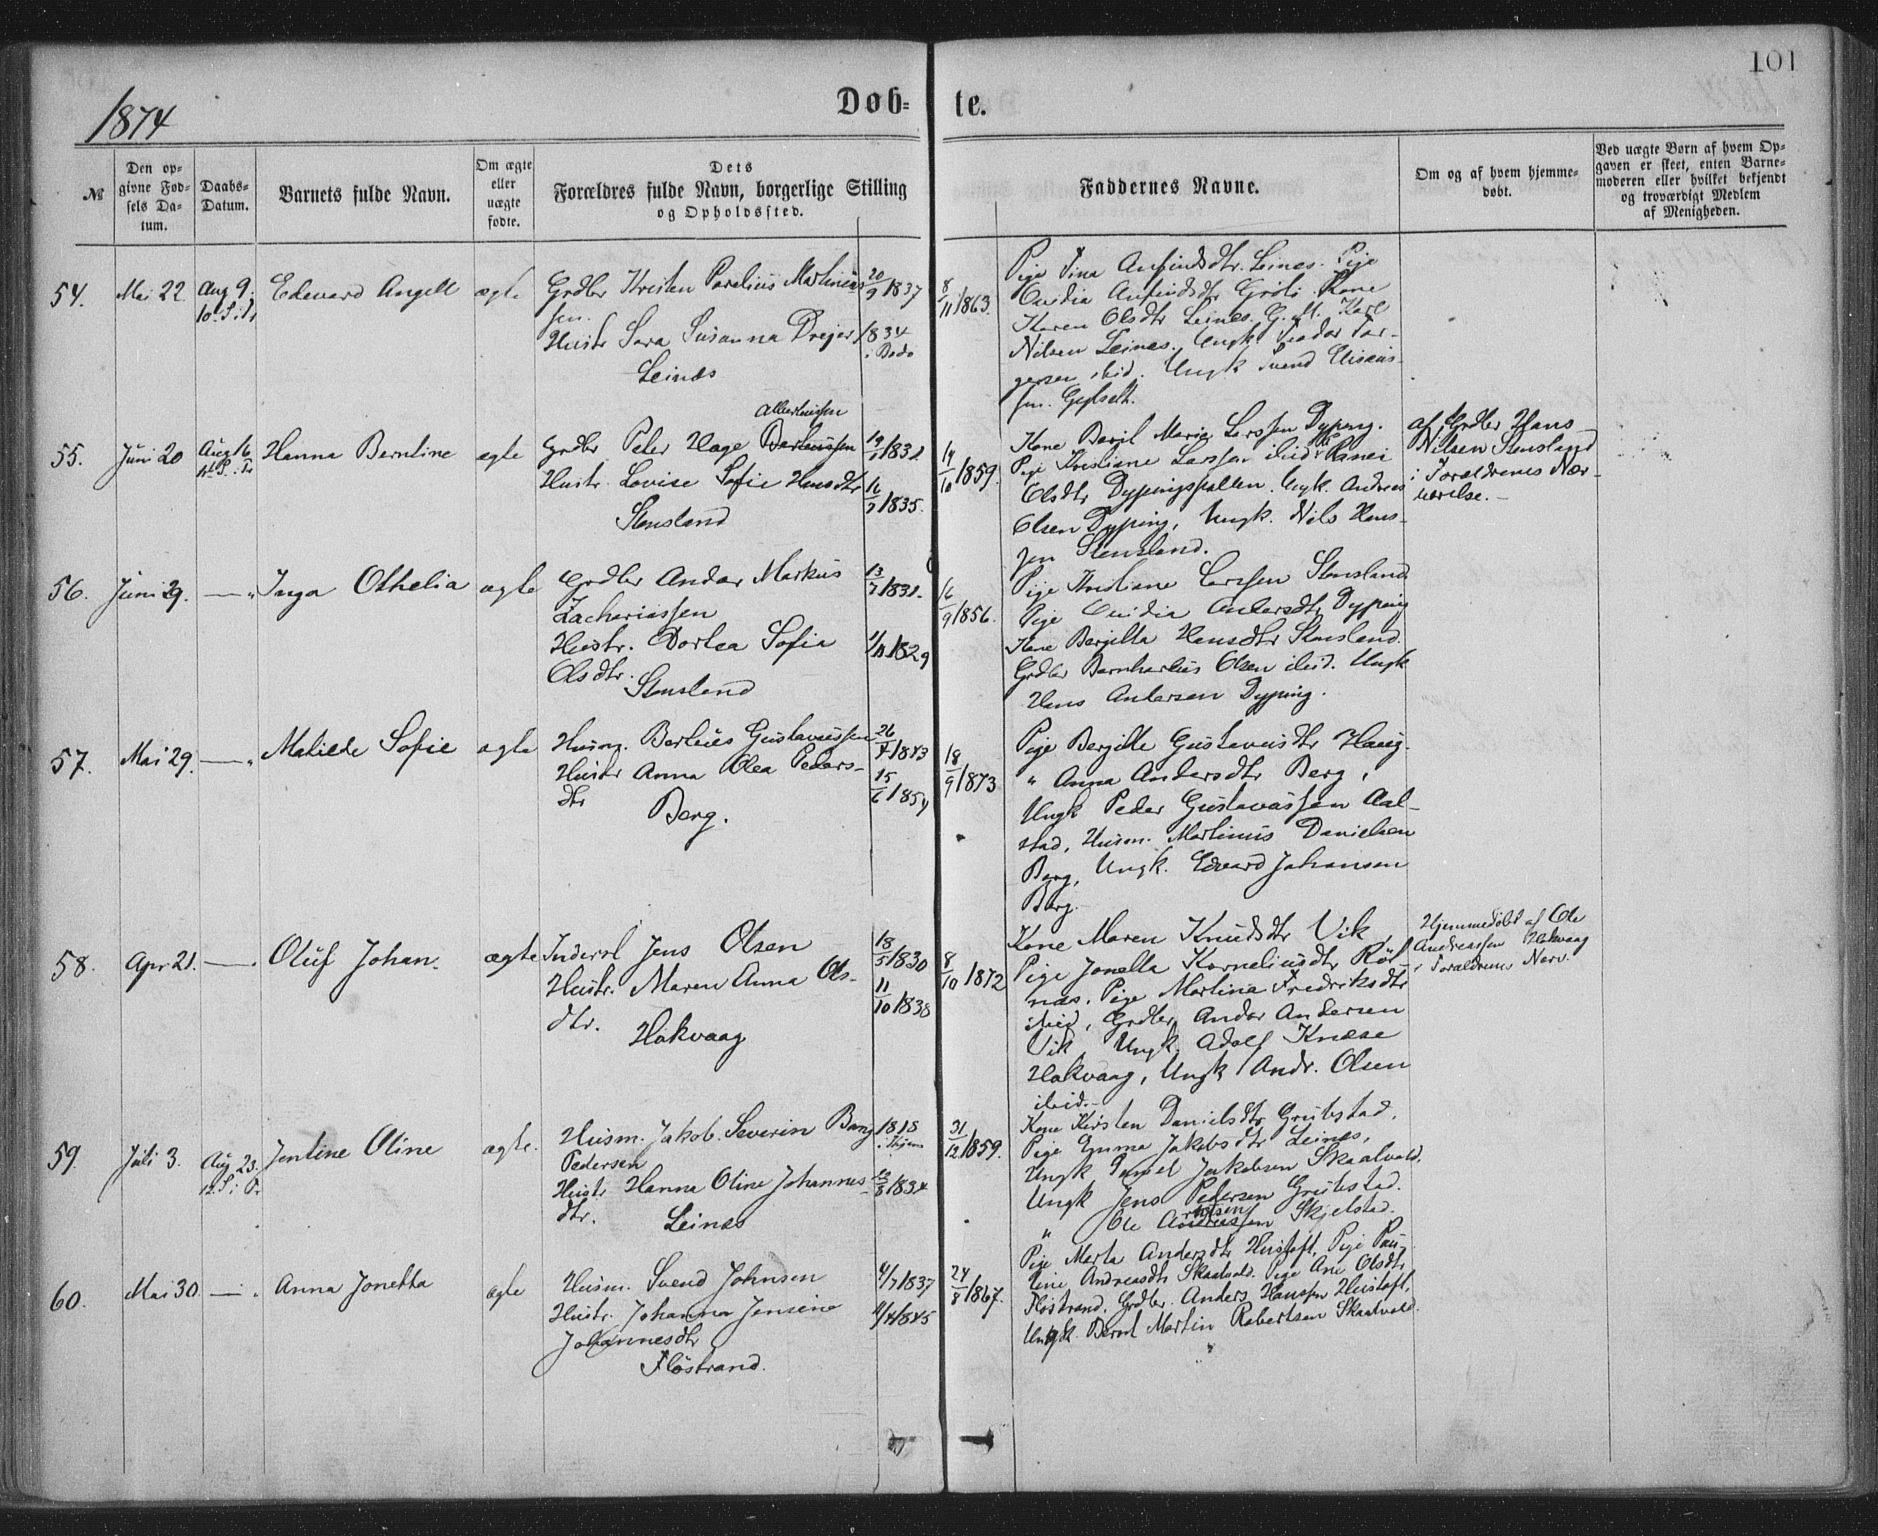 101
1874
Døb-te.
№
Den op-
givne Fød-
sels Da-
tum.
Daabs-
Datum.
Barnets fulde Navn.
Om ægte
eller
uægte
fødte.
Dets
Forældres fulde Navn, borgerlige Stilling
og Opholdssted.
Faddernes Navne.
Om og af hvem hjemme-
døbt.
Ved uægte Børn af hvem Op-
gaven er skeet, enten Barne-
moderen eller hvilket bekjendt
og troværdigt Medlem
af Menigheden.
54. Mai 22. Aug 9. Edevard Angell ægte
10. S. i Tr
Grdbr Kristen Parelius Martinius- 20/9 1837
sen.
Hustr Sara Susanna Drejer 1834
i Bodø
Leinæs
8/11 1863.
Pige Tina Anfindsdtr. Leines. Pige
Ovidia Anfindsdtr Grøti. Kone
Karen Olsdtr Leines. G. M. Karl
Nilsen Leines. Ungk Teodor Tor-
gersen ibid. Ungk Svend
sen.
55. Juni 20 Aug 16 Hanna Berntine ægte
11te S. i Tr
Albertnissen
Grdbr Peter Hage Berteussen 1832
Hustr. Lovise Sofie Hansdtr 16/7 1835.
Stensland
14/10 1859.
Kone Berit Maria Larssen Dyping.
Pige Kristiane Larssen ibid Ranei
Olsdtr Dypingspollen. Ungk. Andreas
Olsen Dyping, Ungk. Nils Hans-
sen Stensland.
af Grdbr Hans
Nilsen Stensland
i Forældrenes Nær-
værelse.
56. Juni 29. —„ Inga Othelia ægte
Grdbr Andor Markus 13/7 1831.
Zachariassen
Hustr. Dortea Sofia 1/11 1829
Olsdtr.
Stensland
6/9 1856.
Pige Kristiane Larssen Stensland
Pige Ovidia Andersdtr Dyping
Kone Berjitta Hansdtr Stensland.
Grdbr Bernhardus Olsen ibid. Ungk
Hans Andersen Dyping.
57. Mai 29. —„ Matilde Sofie ægte
Husm. Berteus Gustavussen 26/4 1843
Hustr Anna Olea Peders- 15/6 1854
dtr
Berg.
18/9 1873
Pige Berjitte Gustavusdtr Haug.
„ Anna Andersdtr Berg,
Ungk Peder Gustavussen Aal-
stad, Husm. Martinus Danielsen
Berg, Ungk. Edvard Johansen
Berg.
58. Apr 21. —„ Oluf Johan. ægte
Inderst Jens Olsen 18/5 1830
Hustr. Maren Anna Ols- 11/10 1838
dtr.
Hokvaag
8/10 1872
Kone Maren Knudsdtr Vik,
Pige Jonetta Korneliusdtr Røs-
næs, Pige Martina Fredriksdtr
ibid, Grdbr Andor Andersen
Vik, Ungk. Adolf Knæse
Hokvaag, Ungk Andr. Olsen
ibid.
Hjemmedøbt af Ole
Andreassen Hokvaag
i Forældrenes Nærv.
59. Juli 3. Aug 23. Jentine Oline ægte.
12. S. i Tr
Husm. Jakob Severin Bang 1818
Pedersen
Hustr Hanna Oline Johannes- 12/8 1834
dtr.
Leines
31/12 1859.
Kone Kirsten Danielsdtr Grubstad.
Pige Emma Jakobsdtr Leines,
Ungk Daniel Jakobsen Skaalvold.
Ungk Jens Pedersen Grubstad.
„ Ole Andreassen Skjelstad.
60. Mai 30 —„ Anna Jonetta ægte
Husm. Svend Johnsen 4/7 1837
Hustr. Johanna Jensine 4/4 1845
Johannesdtr
Fløstrand.
24/8 1867.
Pige Marta Andersdtr Hustoft, Pige Pau-
line Andreasdtr Skaalvold. Pige Ane Olsdtr
Fløstrand, Grdbr. Anders Hanssen Hustoft,
Ungk. Bernt Martin Robertsen Skaalvold.